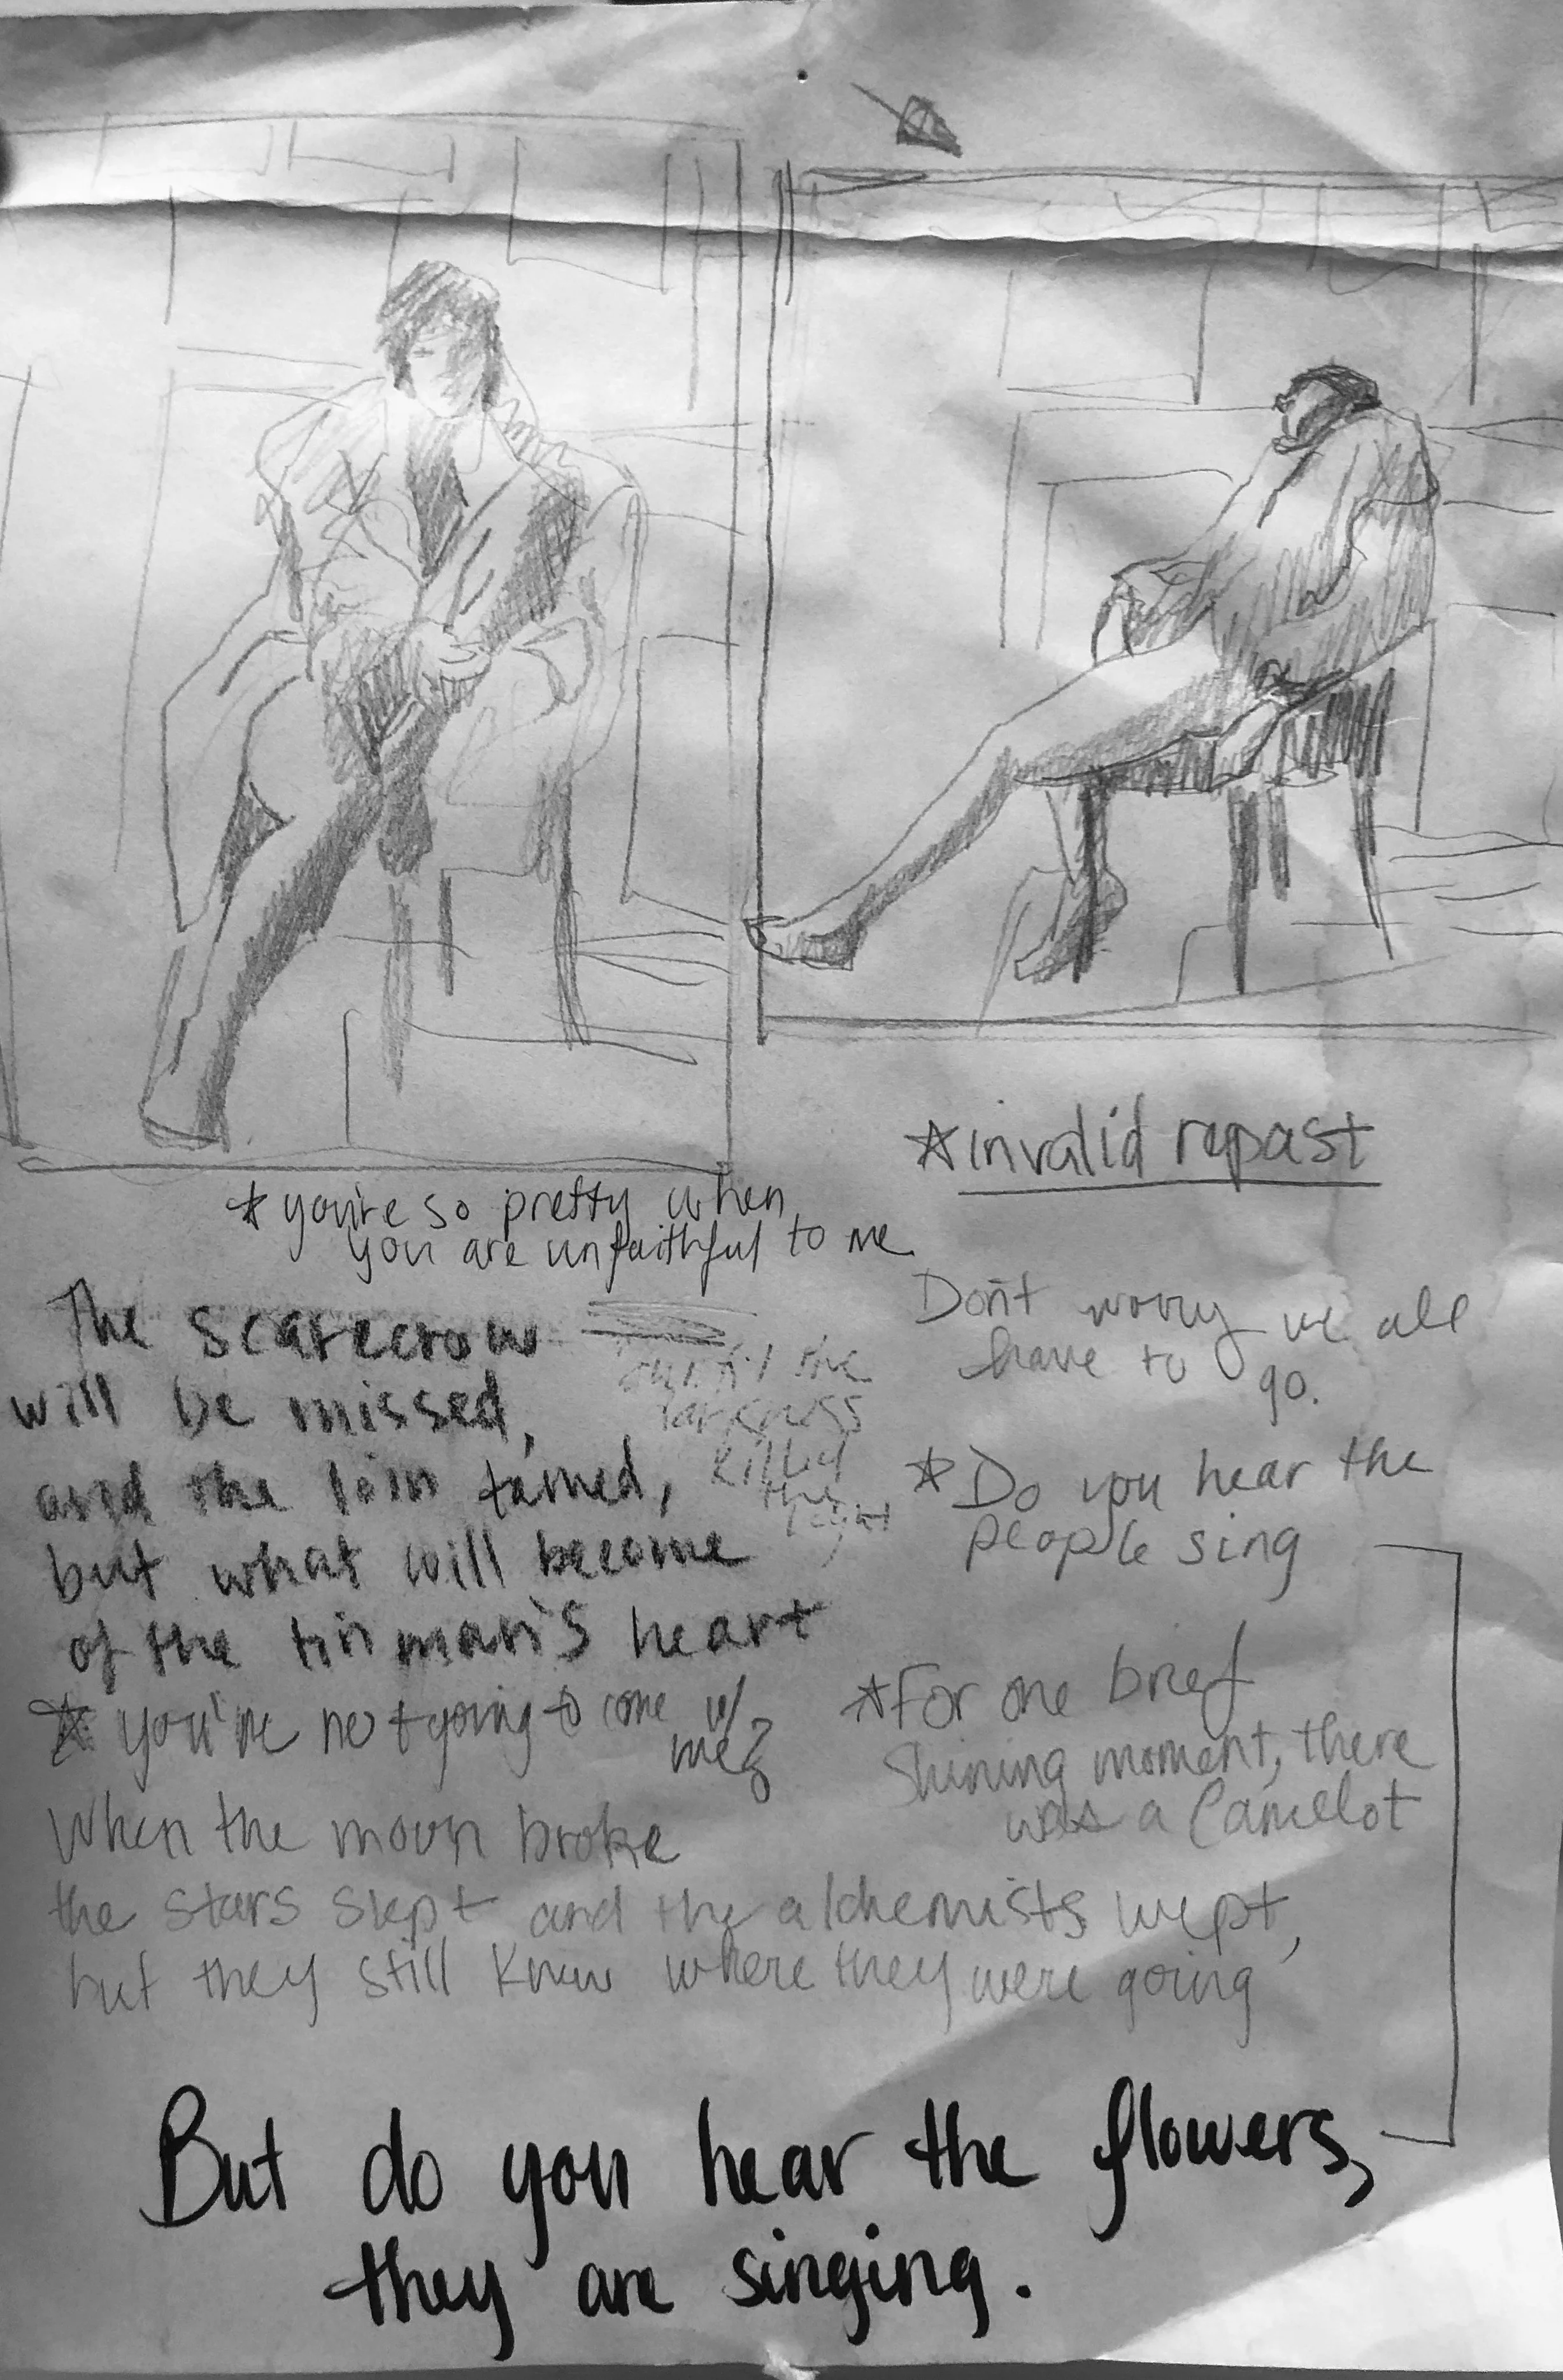 *invalid repast
*you're so pretty when
you are unfaithful to me
Don't worry we all
have to go.
The scarecrow
will be missed,
and the loin tamed,
but what will become
of the tin man's heart
the
darkness
killed
the
light
*Do you hear the
people sing
*you're not going to come w/
me?
*For one brief
shining moment, there
was a Camelot
When the moon broke
the stars slept and the alchemists wept,
but they still knew where they were going
But do you hear the flowers,
they are singing.